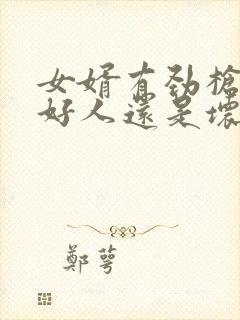 女婿有劲槍
好人還是壞
鄭萼